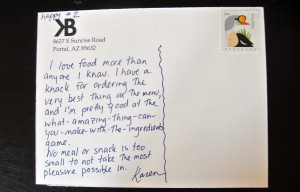 happy #2
KB
8627 E Sunrise Road
Portal, AZ 85632
I love food more than
anyone I know. I have a
knack for ordering the
very best thing on the menu,
and I'm pretty good at the
what-amazing-thing-can-
you-make-with-the-ingredients
game.
No meal or snack is too
small to not take the most
pleasure possible in.
Karen